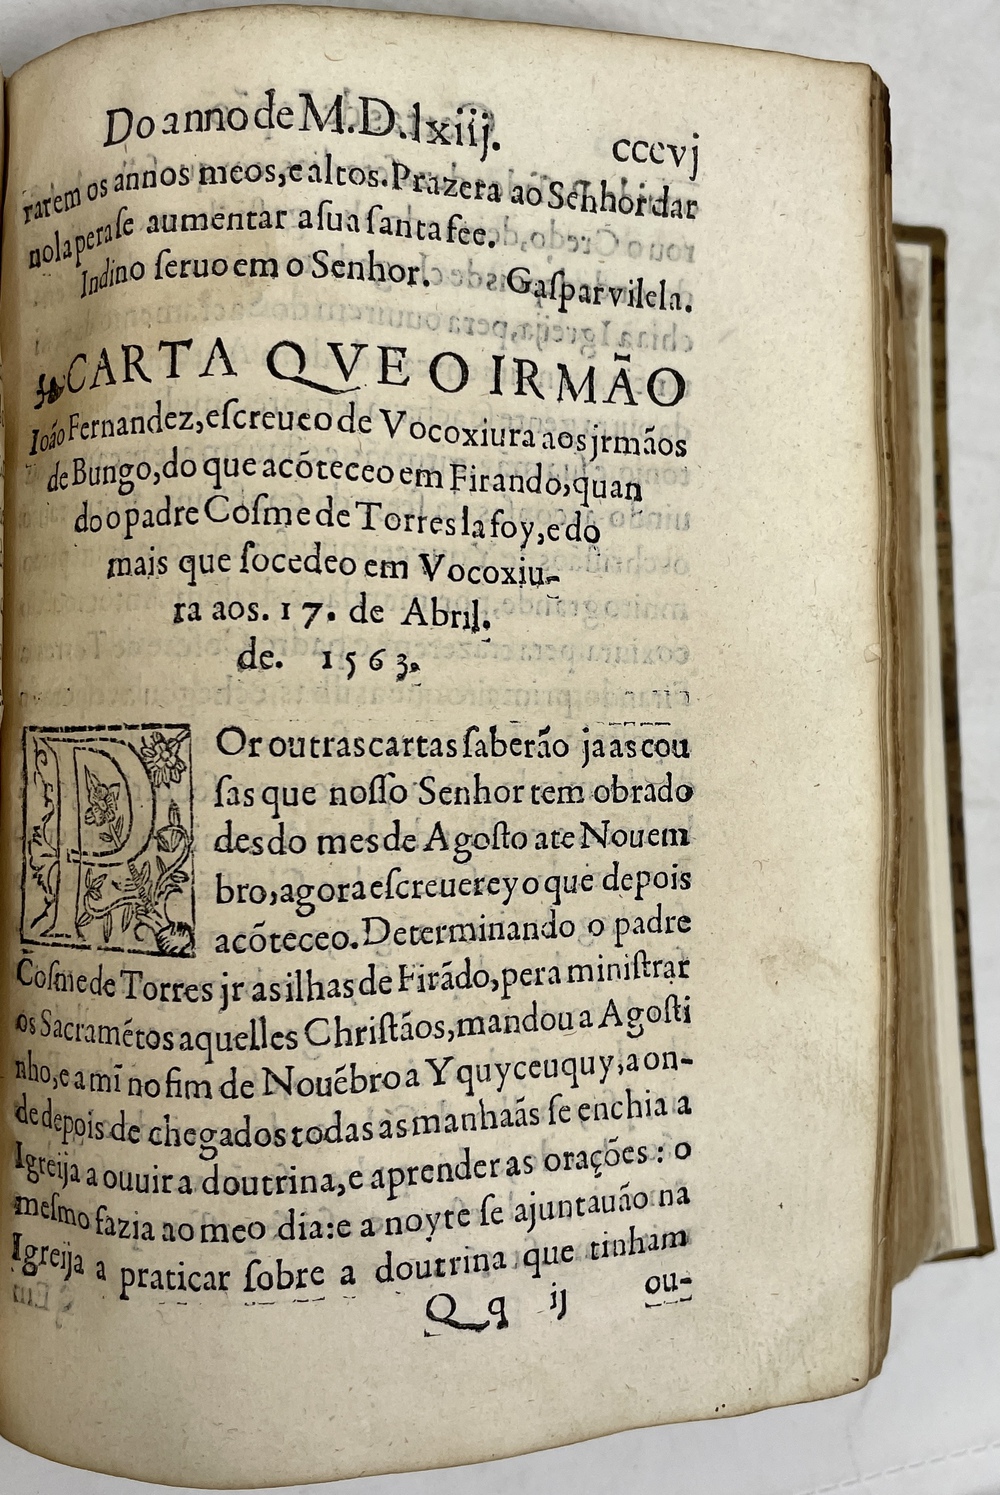 Do anno de M.D.lxiij. cccvj
rarem os annos meos, e altos. Prazera ao Senhor dar
nola pera se aumentar a sua santa fee.
Indino seruo em o Senhor. Gaspar vilela.
CARTA QVE O IRMÃO
Ioão Fernandez, escreueo de Vocoxiura aos jrmãos
de Bungo, do que acõteceo em Firando, quan
do o padre Cosme de Torres la foy, e do
mais que socedeo em Vocoxiu-
ra aos. 17. de Abril.
de. 1563.
POr outras cartas saberão ja as cou
sas que nosso Senhor tem obrado
desdo mes de Agosto ate Nouem
bro, agora escreuerey o que depois
acõteceo. Determinando o padre
Cosme de Torres jr as ilhas de Firãdo, pera ministrar
os Sacramẽtos aquelles Christãos, mandou a Agosti
nho, e a mĩ no fim de Nouẽbro a Yquyceuquy, a on-
de depois de chegados todas as manhaãs se enchia a
Igreija a ouuir a doutrina, e aprender as orações: o
mesmo fazia ao meo dia: e a noyte se ajuntauão na
Igreija a praticar sobre a doutrina que tinham
Qq ij ou-